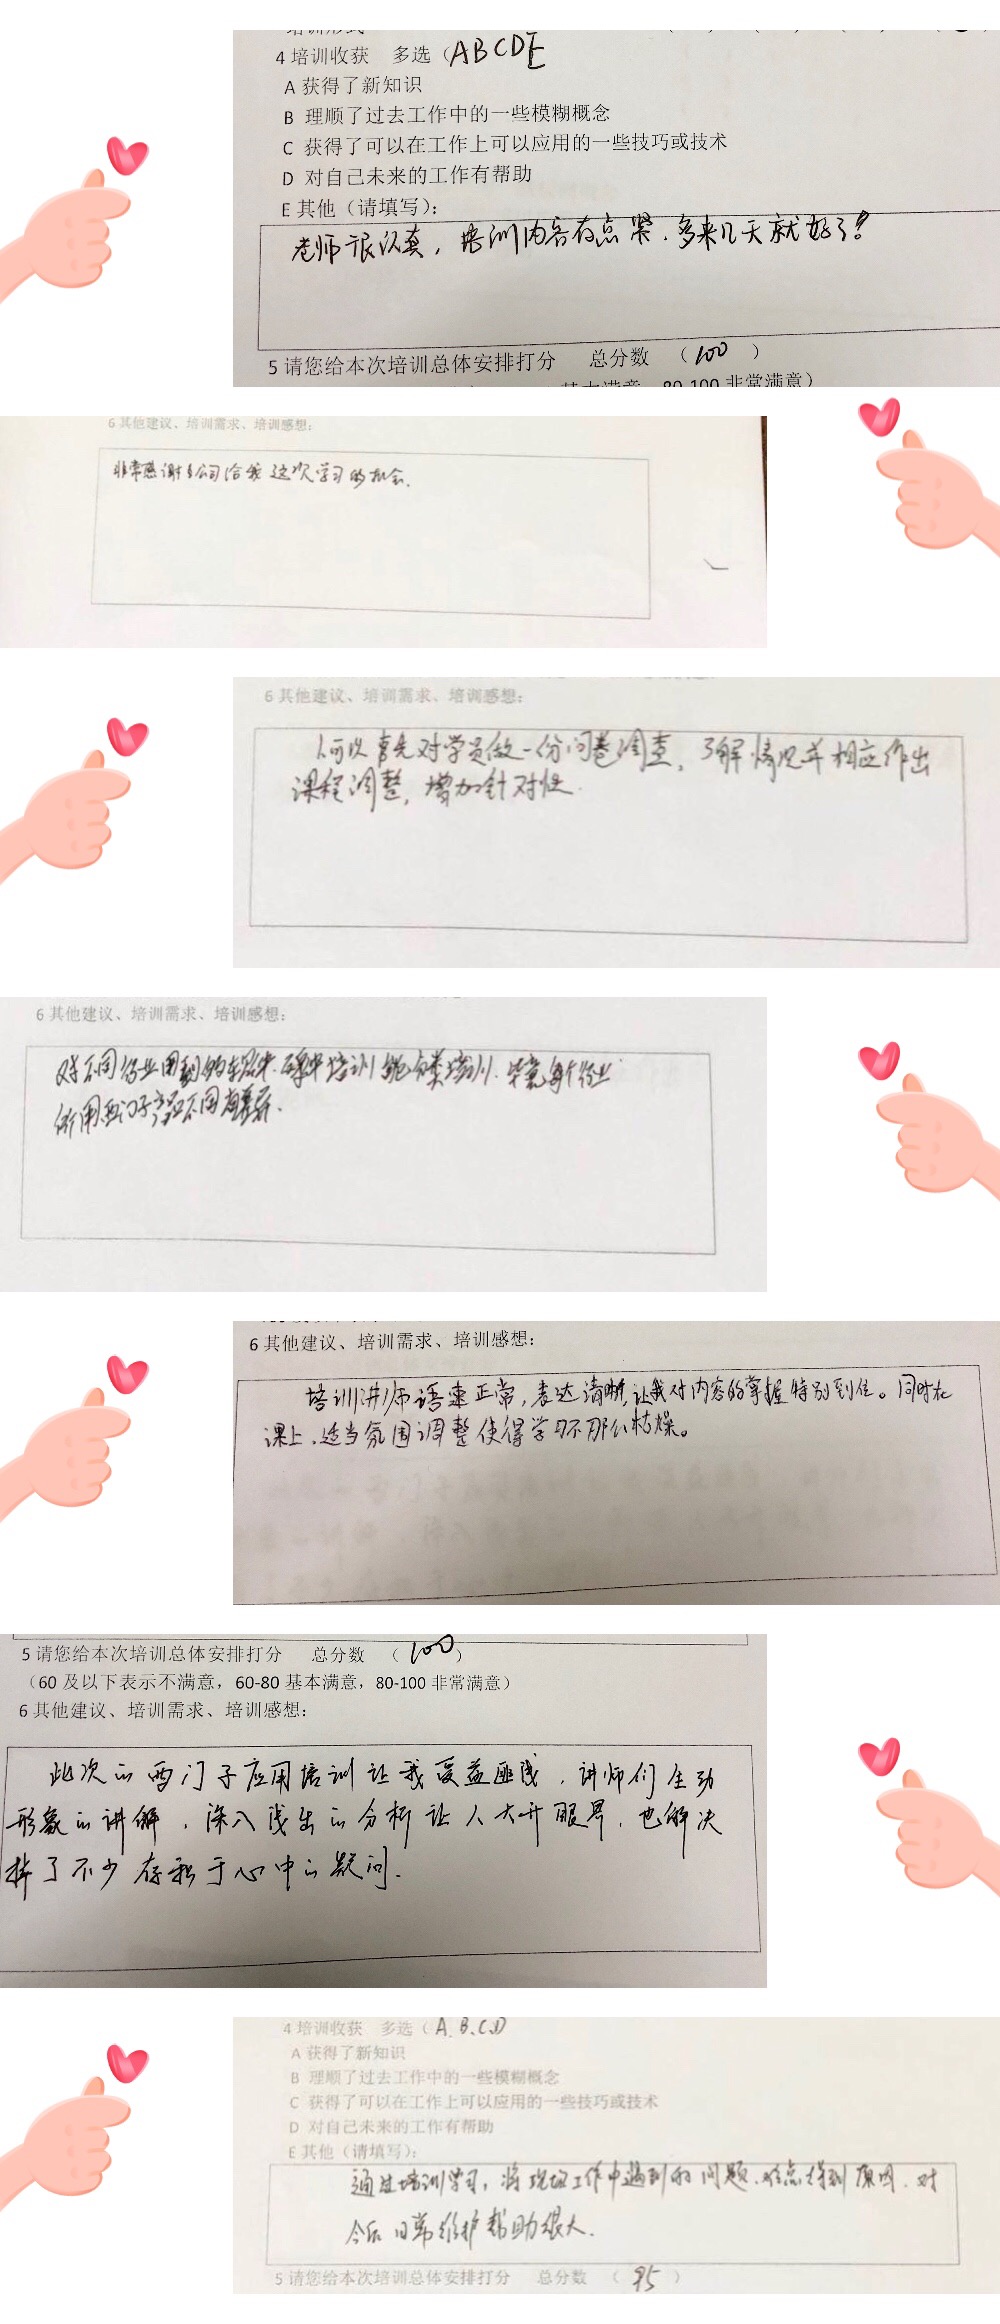 4 培训收获 多选（ABCDE
A 获得了新知识
B 理顺了过去工作中的一些模糊概念
C 获得了可以在工作上可以应用的一些技巧或技术
D 对自己未来的工作有帮助
E 其他（请填写）：
老师很认真，培训内容有点紧，多来几天就好了！
5 请您给本次培训总体安排打分 总分数 （100）
基本满意，80-100 非常满意）
6 其他建议、培训需求、培训感想：
非常感谢公司给我这次学习的机会.
6 其他建议、培训需求、培训感想：
可以首先对学员做一份问卷调查，了解情况并相应作出
课程调整，增加针对性.
6 其他建议、培训需求、培训感想：
对不同行业用到的软件.硬件培训能分类培训.毕竟每个行业
所用西门子产品不同有差异.
6 其他建议、培训需求、培训感想：
培训讲师语速正常，表达清晰，让我对内容的掌握特别到位。同时在
课上，适当氛围调整使得学习不那么枯燥。
5 请您给本次培训总体安排打分 总分数 （100）
（60 及以下表示不满意，60-80 基本满意，80-100 非常满意）
6 其他建议、培训需求、培训感想：
此次的西门子应用培训让我受益匪浅，讲师们生动
形象的讲解，深入浅出的分析让人大开眼界，也解决
掉了不少存积于心中的疑问.
4 培训收获 多选（A、B、C、D
A 获得了新知识
B 理顺了过去工作中的一些模糊概念
C 获得了可以在工作上可以应用的一些技巧或技术
D 对自己未来的工作有帮助
E 其他（请填写）：
通过培训学习，将现场工作中遇到的问题、难点得到原因，对
今后日常维护帮助很大.
5 请您给本次培训总体安排打分 总分数 （95）